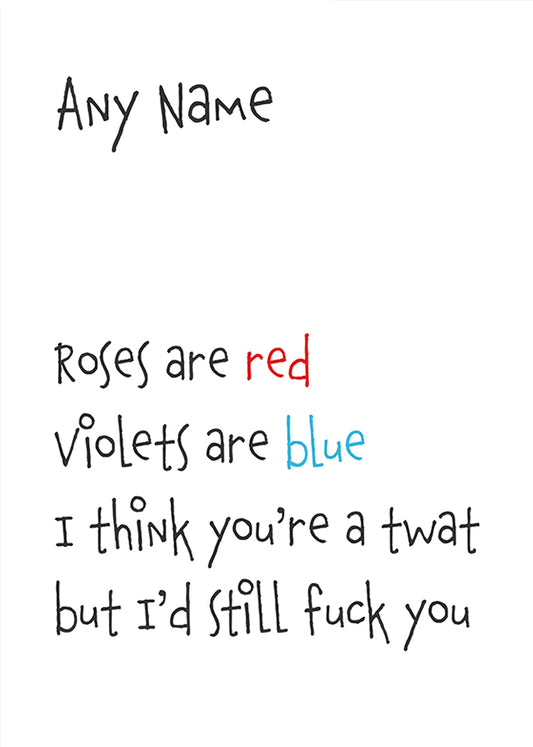 Any Name
Roses are red
violets are blue
I think you're a twat
but I'd still fuck you